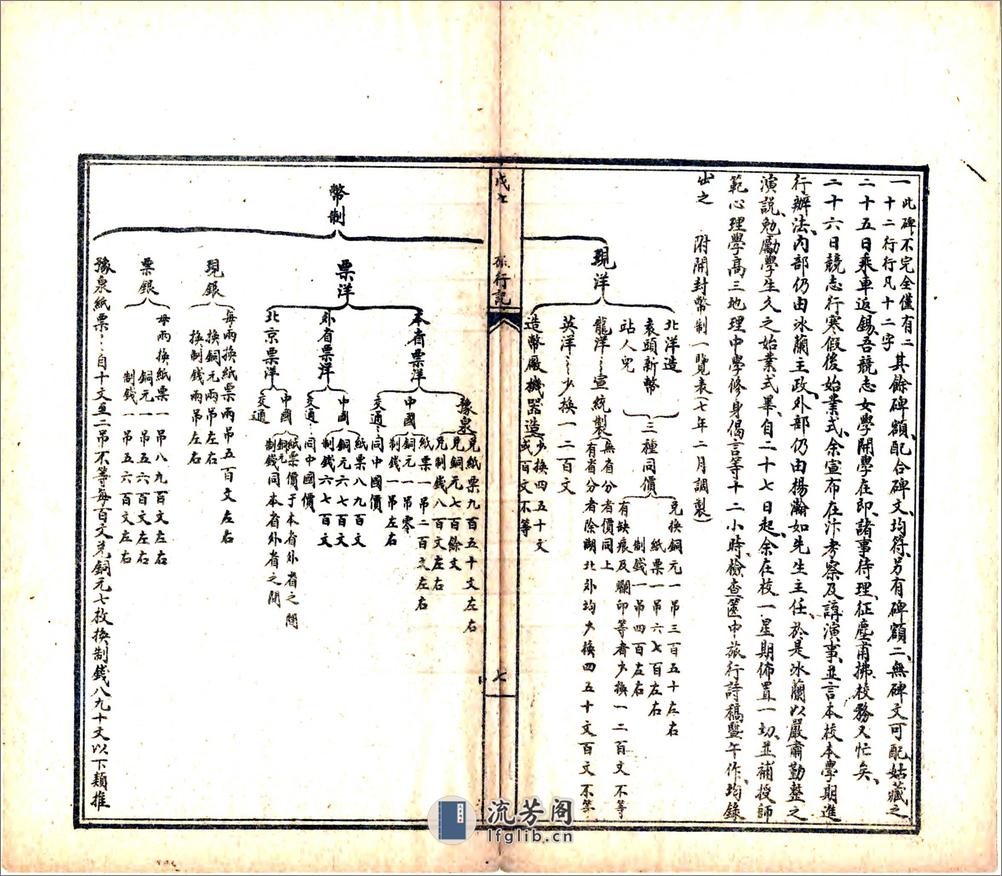 一此碑不完全僅有二
十二行行凡十二字
其餘碑額配合碑文均符另有碑額二無碑文可配姑藏之
二十五日乘車返錫吾競志女學開學在即諸事待理征塵甫拂校務又忙矣
二十六日競志行寒假後始業式余宣布在汴考察及講演事並言本校本學期進
行辦法內部仍由冰蘭主政外部仍由楊瀚如先生主任於是冰蘭以嚴肅勤整之
演說勉勵學生久之始業式畢自二十七日起余在校一星期佈置一切並補授師
範心理學高三地理中學修身倡言等十二小時檢查篋中旅行詩稿暨午作均錄
出之 附開封幣制一覽表(七年二月調製)
幣制
現洋
北洋造
袁頭新幣
站人兒
三種同價
兌換銅元一吊三百五十左右
紙票一吊六七百左右
制錢一吊四百左右
有缺痕及腳印等者少換一二百文不等
龍洋…宣統製
無省分者價同上
有省分者除湖北外均少換四五十文百文不等
英洋…少換一二百文
造幣廠機器造
少換四五十文
或百文不等
戊七
旅行記
七
票洋
本省票洋
豫泉
兌紙票九百五十文左右
兌銅元七百餘文
兌制錢八百文左右
中國
紙票一吊二百文左右
銅元一吊零
制錢一吊左右
交通…同中國價
外省票洋
中國
紙票八九百文
銅元六七百文
制錢六七百文
交通…同中國價
北京票洋
中國
交通
紙票價于本省外省之間
銅元
制錢同本省外省之間
現銀
每兩換紙票兩吊五百文左右
換銅元兩吊左右
換制錢兩吊左右
票銀
每兩換紙票一吊八九百文左右
銅元一吊五六百文左右
制錢一吊五六百文左右
豫泉紙票…自十文至二吊不等每百文兌銅元七枚換制錢八九十文以下類推
流芳阁
lfglib.cn